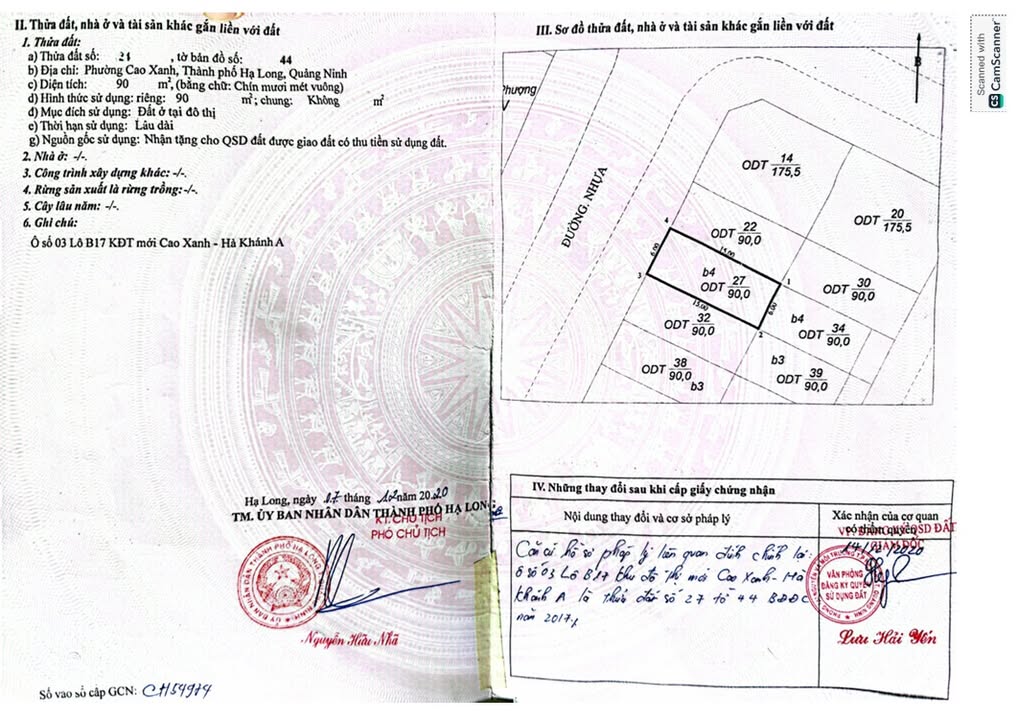 II. Thửa đất, nhà ở và tài sản khác gắn liền với đất
1. Thửa đất:
a) Thửa đất số: 21 , tờ bản đồ số: 44
b) Địa chỉ: Phường Cao Xanh, Thành phố Hạ Long, Quảng Ninh
c) Diện tích: 90 m², (bằng chữ: Chín mươi mét vuông)
d) Hình thức sử dụng: riêng: 90 m²; chung: Không m²
đ) Mục đích sử dụng: Đất ở tại đô thị
e) Thời hạn sử dụng: Lâu dài
g) Nguồn gốc sử dụng: Nhận tặng cho QSD đất được giao đất có thu tiền sử dụng đất.
2. Nhà ở: -/-.
3. Công trình xây dựng khác: -/-.
4. Rừng sản xuất là rừng trồng: -/-.
5. Cây lâu năm: -/-.
6. Ghi chú:
Ô số 03 Lô B17 KĐT mới Cao Xanh - Hà Khánh A
Hạ Long, ngày 17 tháng 12 năm 2020
TM. ỦY BAN NHÂN DÂN THÀNH PHỐ HẠ LONG
KT. CHỦ TỊCH
PHÓ CHỦ TỊCH
Nguyễn Hữu Nhã
Số vào sổ cấp GCN: CH54974
III. Sơ đồ thửa đất, nhà ở và tài sản khác gắn liền với đất
B
Phượng
V
ĐƯỜNG. NHỰA
ODT 14
175,5
ODT 20
175,5
ODT 22
90,0
4
15.00
6.00
3
b4
ODT 27
90,0
1
6.00
15.00
2
ODT 30
90,0
b4
ODT 34
90,0
ODT 32
90,0
b3
ODT 39
90,0
ODT 38
90,0
b3
IV. Những thay đổi sau khi cấp giấy chứng nhận
Nội dung thay đổi và cơ sở pháp lý
Xác nhận của cơ quan
có thẩm quyền
Căn cứ hồ sơ pháp lý liên quan đính chính lại:
ô số 03 Lô B17 khu đô thị mới Cao Xanh - Hà
Khánh A là thửa đất số 27 tờ 44 BĐĐC
năm 2017
GIÁM ĐỐC
VĂN PHÒNG
ĐĂNG KÝ QUYỀN
SỬ DỤNG ĐẤT
Lưu Hải Yến
Scanned with
CS CamScanner